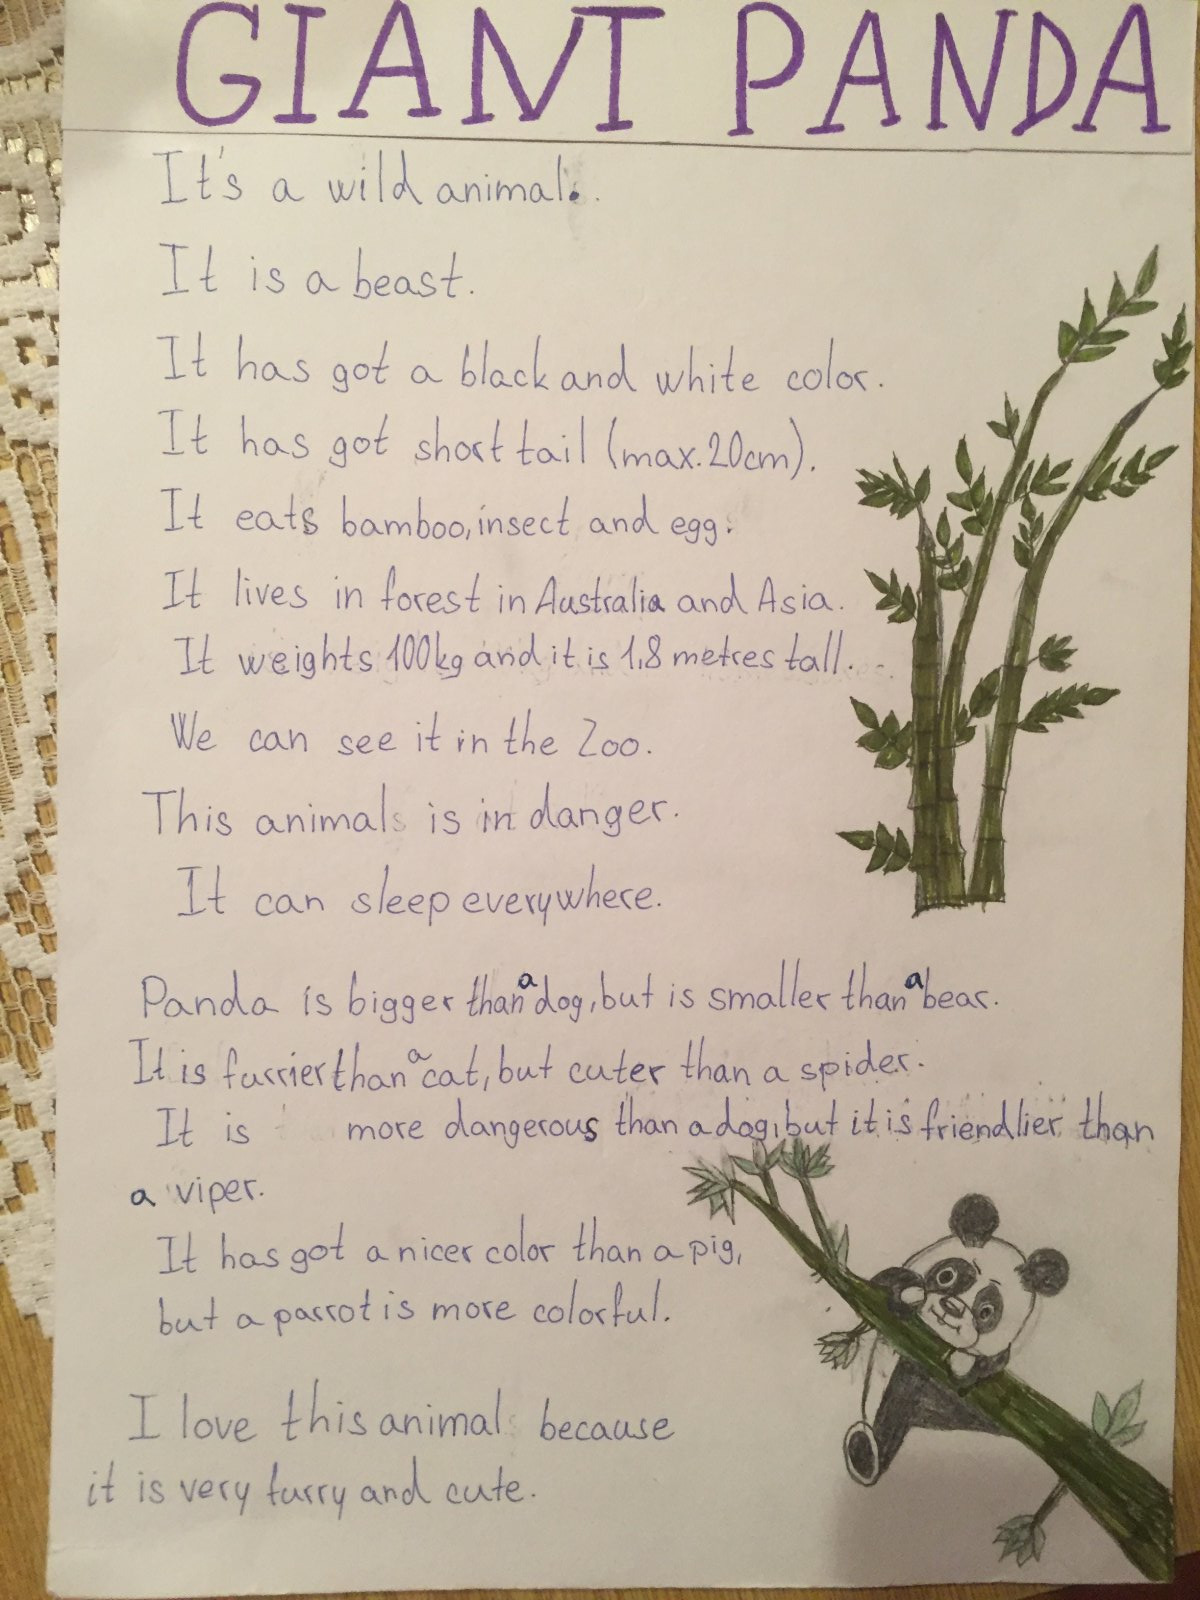 GIANT PANDA
It's a wild animal.
It is a beast.
It has got a black and white color.
It has got short tail (max. 20cm).
It eats bamboo, insect and egg.
It lives in forest in Australia and Asia.
It weights 100kg and it is 1,8 metres tall.
We can see it in the Zoo.
This animal is in danger.
It can sleep everywhere.
Panda is bigger than a dog, but is smaller than a bear.
It is furrier than a cat, but cuter than a spider.
It is more dangerous than a dog, but it is friendlier than
a viper.
It has got a nicer color than a pig,
but a parrot is more colorful.
I love this animal because
it is very furry and cute.